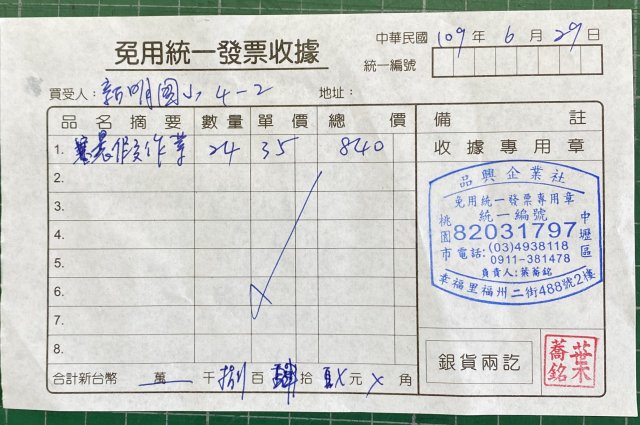 免用統一發票收據
中華民國 109 年 6 月 29 日
統一編號
買受人：新明國小 4-2 地址：
品名摘要 數量 單價 總價 備註
1. 暑假作文作業 24 35 840 收據專用章
2.
3.
4.
5.
6.
7.
8.
品興企業社
免用統一發票專用章
統一編號
桃園市 82031797 中壢區
電話：(03)4938118
0911-381478
負責人：葉蕎銘
幸福里福州二街488號2樓
合計新台幣 萬 千 捌 百 肆 拾 元 角
銀貨兩訖
葉蕎銘